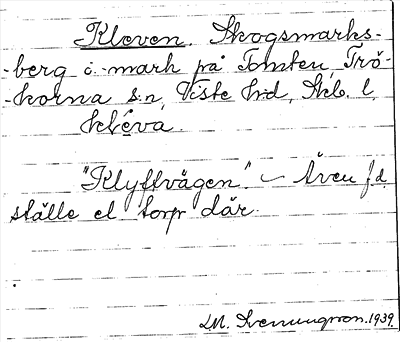 Kleven. Skogsmarks-
-berg i -mark på Tomten, Trö-
-korna s:n, Viste h:d, Skb. l.
kléva.
"Klyftvägen." – Även f.d.
ställe el torp där.
LM. Svenungsson. 1939.